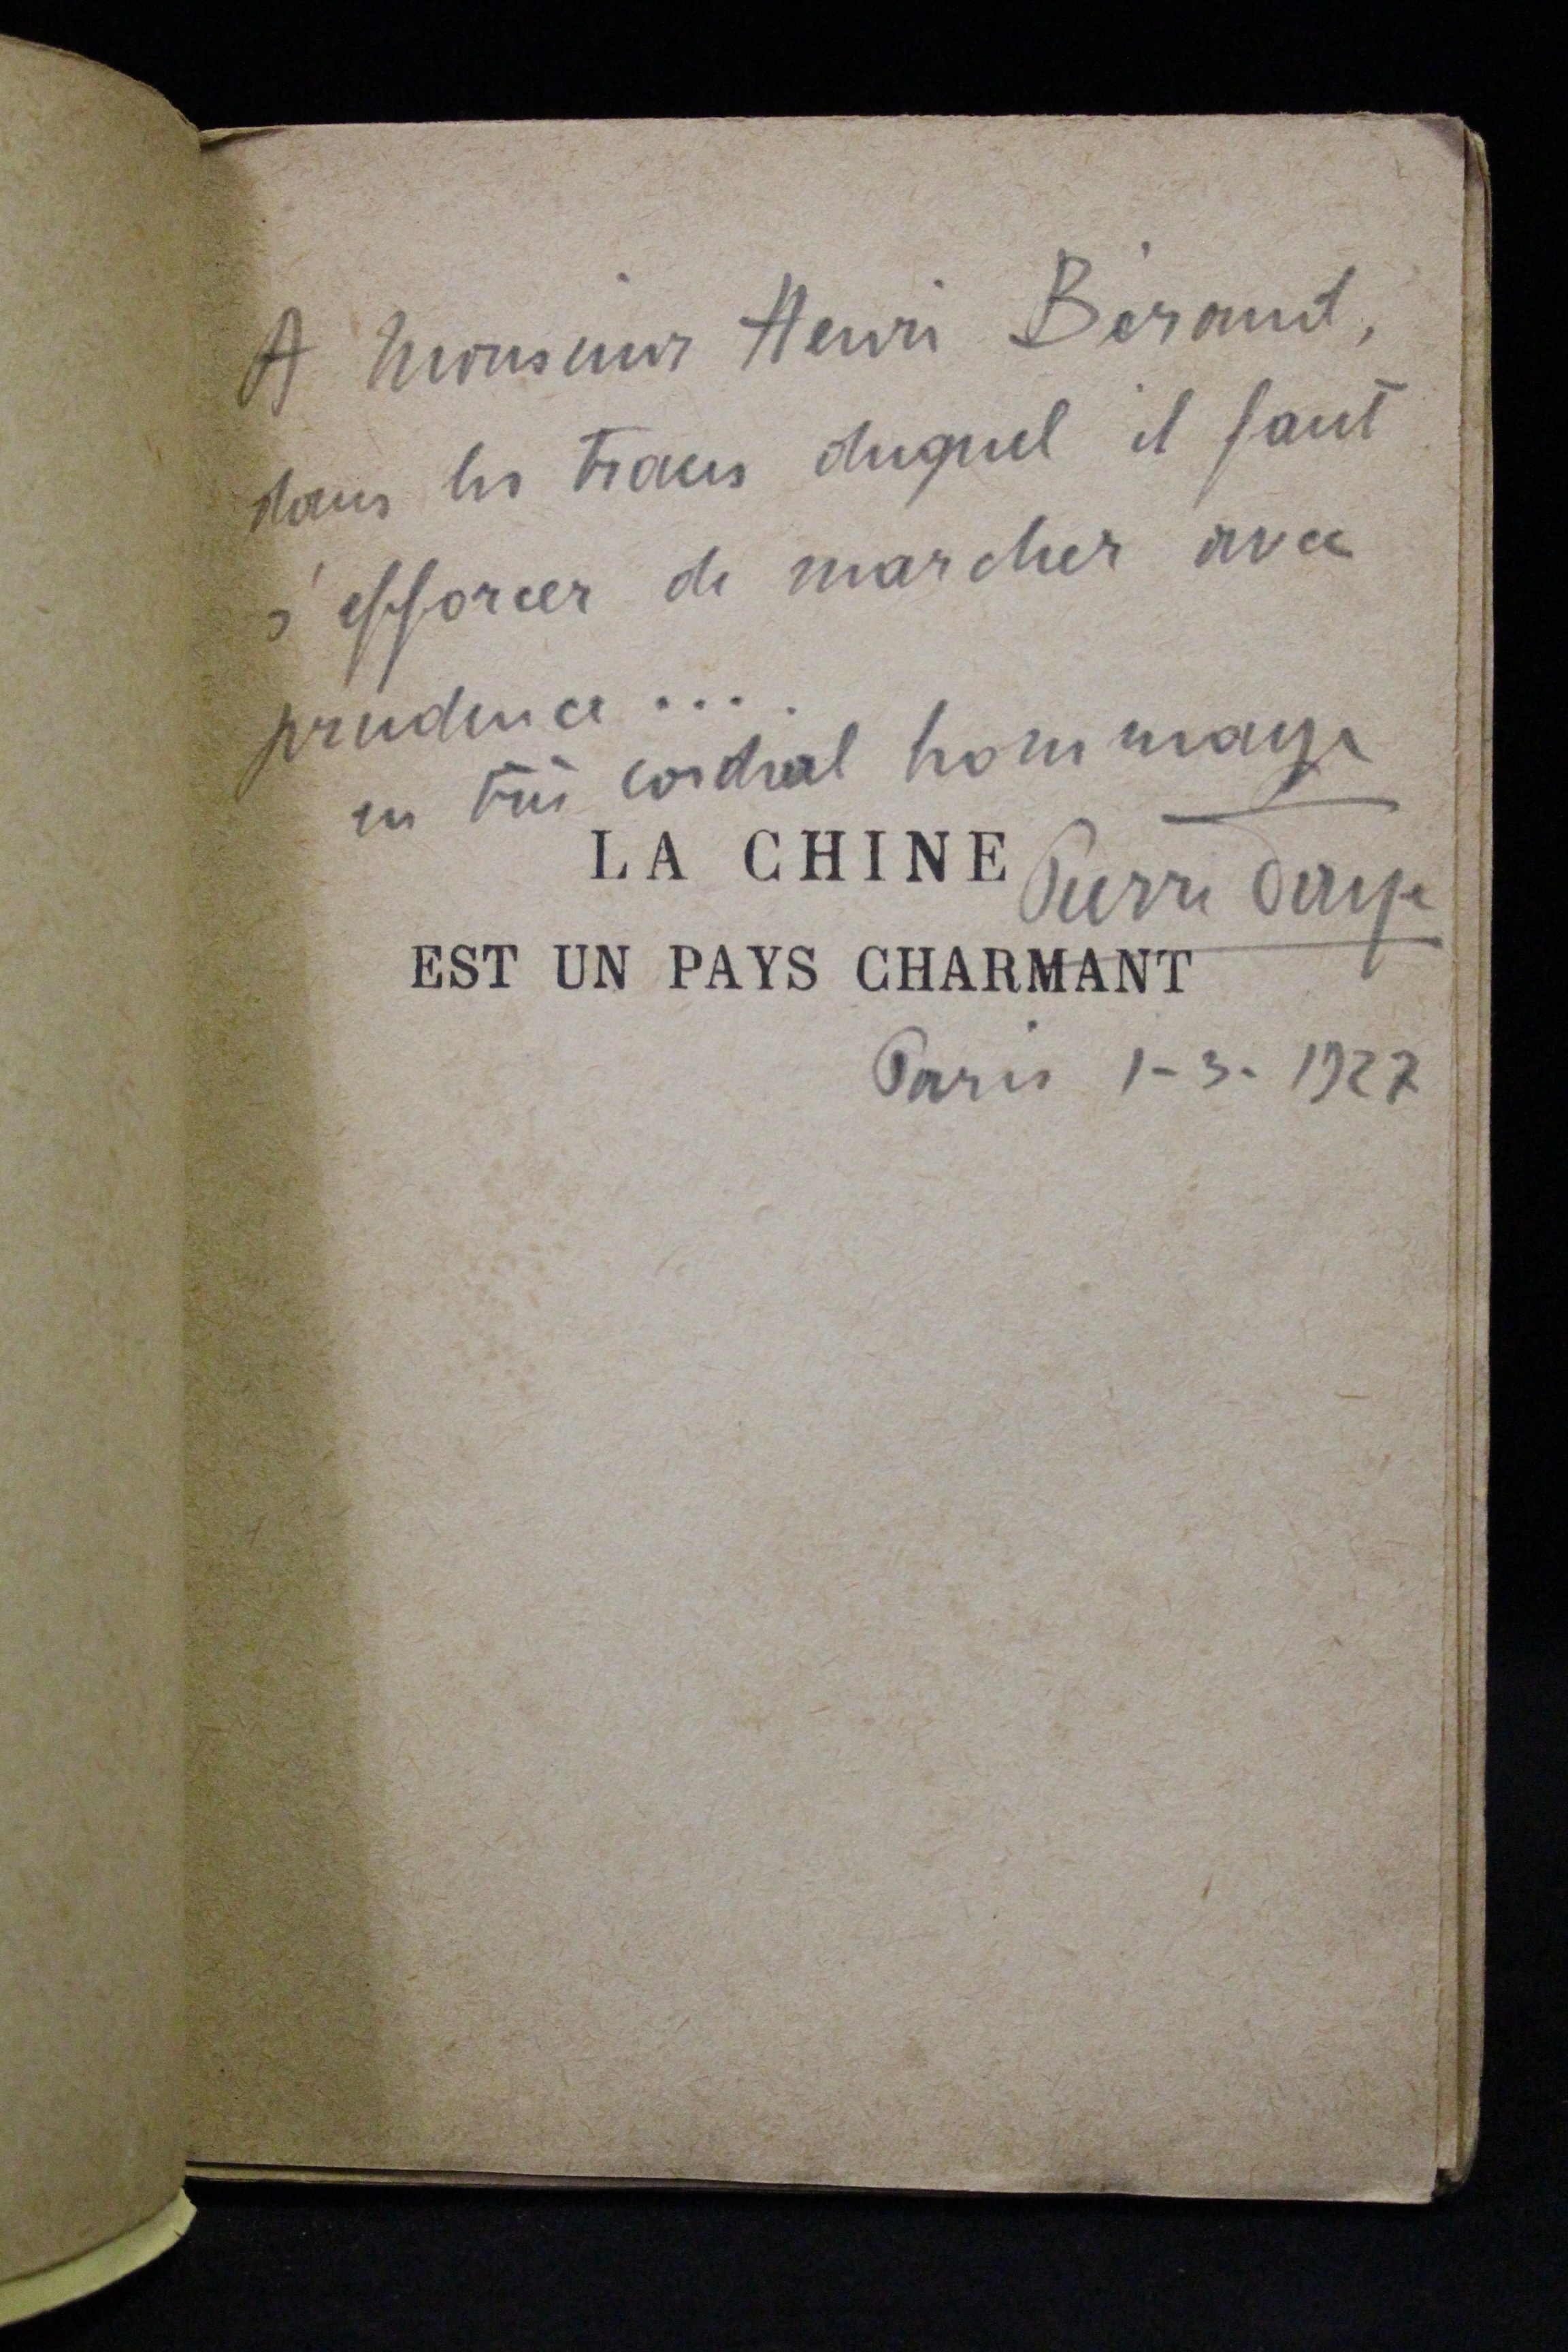 A Monsieur Henri Béraud,
dans les traces duquel il faut
s'efforcer de marcher avec
prudence ....
en très cordial hommage
LA CHINE
Pierre Daye
EST UN PAYS CHARMANT
Paris 1-3-1927